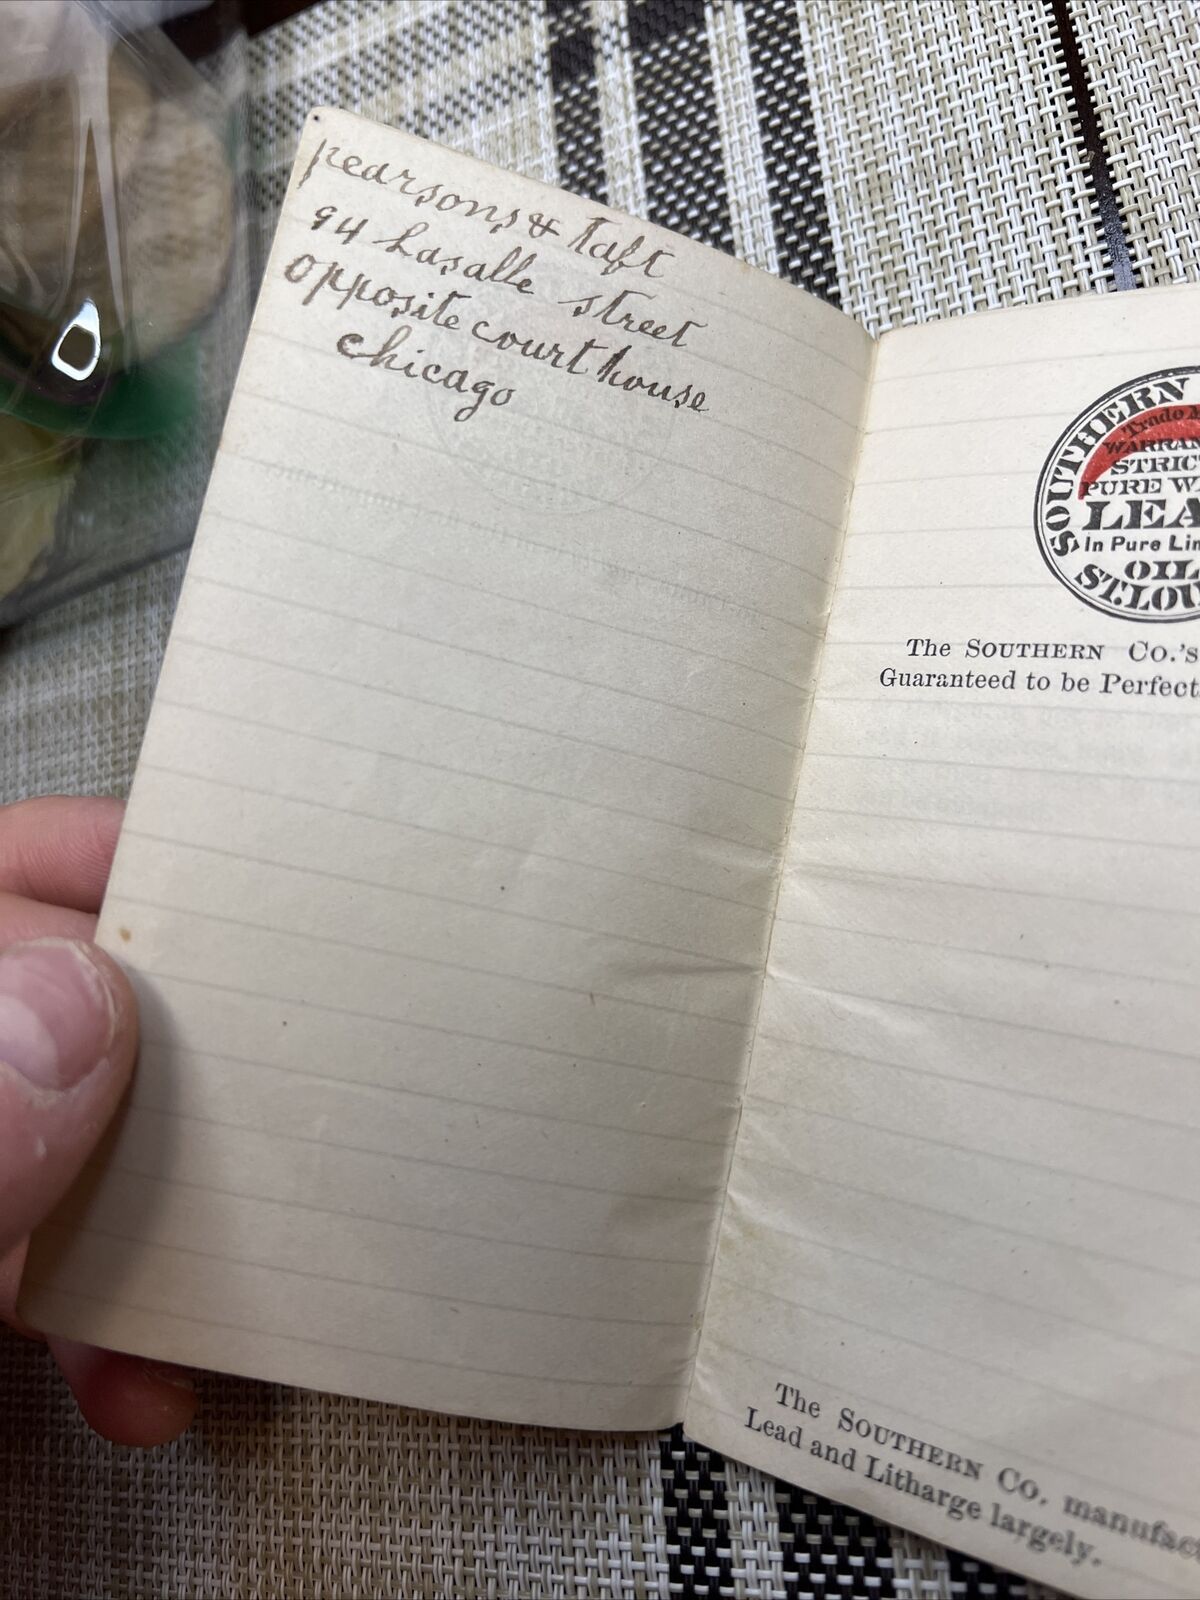 pearsons & Taft
94 Lasalle street
opposite court house
chicago
SOUTHERN
Trade
STRICT
PURE
In Pure
OIL
The SOUTHERN Co.'s
Guaranteed to be Perfect
The SOUTHERN Co.
Lead and Litharge largely.